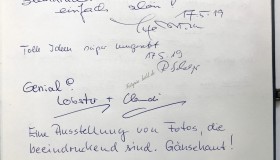 einfach schön!
17.5.19
Tolle Ideen super umgesetzt
17.5.19
Genial!
Lobster + Claudi
Eine Ausstellung von Fotos, die
beeindruckend sind. Gänsehaut!